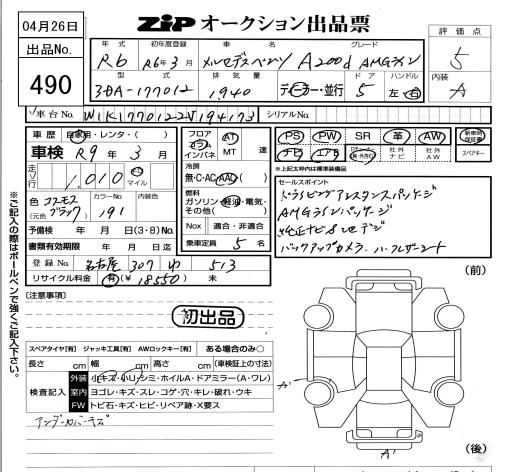 04月26日
出品No.
490
ZiP オークション出品票
評価点
5
内装
A
年式 初年度登録 車名 グレード
R6 R6年3月 メルセデスベンツ A200d AMGライン
型式 排気量 ドア ハンドル
3DA-177012 1,940 ディーラー・並行 5 左・右
車台No. W1K1770122V194173 シリアルNo.
車歴 自家用・レンタ・( )
車検 R9年3月
走行 1,010 km マイル
色 コスモスブラック (元色 ) カラーNo. 191 内装色
予備検 年 月 日(3・8)No.
書類有効期限 年 月 日迄
登録No. 名古屋 307 ゆ 513
リサイクル料金 有(¥ 18550 ) 未
フロア コラム インパネ AT MT 速
冷房 無・C・AC・AAC( )
燃料 ガソリン・軽油・電気・その他( )
Nox 適合・非適合
乗車定員 5 名
PS PW SR 革 AW 新車時保証書
ナビ エアB 社外ナビ 社外AW スペアキー
*上記太枠内は標準装備品
セールスポイント
ドライビングアシスタンスパッケージ
AMGラインパッケージ
純正ナビ フルセグ地デジ
バックアップカメラ ハーフレザーシート
[注意事項]
初出品
スペアタイヤ[有] ジャッキ工具[有] AWロックキー[有] ある場合のみ○
長さ cm 幅 cm 高さ cm (車検証上の寸法)
検査記入
外装 小キズ・小U・シミ・ホイルA・ドアミラー(A・ワレ)
室内 ヨゴレ・キズ・スレ・コゲ・穴・キレ・破れ・ウキ
FW トビ石・キズ・ヒビ・リペア跡・X要ス
アンダーカバーキズ
(前)
A'
A'
(後)
※ご記入の際はボールペンで強くご記入下さい。